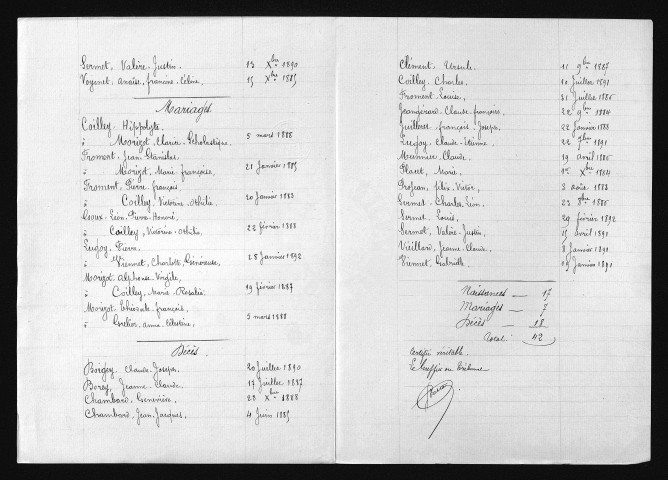 Sermet, Valère Justin 13 Xbre 1890
Voyenet, Anaïs, francine, Céline, 15 Xbre 1885
Mariages
Coilley, Hippolyte,
à Morizot, Claire, Scholastique, 5 mars 1888
Froment, Jean Stanislas
à Morizot, Marie françoise, 21 Janvier 1885
Froment, Pierre françois
à Coilley, Victorine Othilie, 20 Janvier 1883
Léon, Pierre Honoré,
à Coilley, Victorine Othilie, 22 février 1888
Lugoy, Pierre
à Viennet, Charlotte, Généreuse, 28 Janvier 1892
Morizot Alphonse Virgile,
à Coilley, Marie Rosalie 19 février 1887
Morizot, françois,
à Grélier, Anna Célestine, 5 mars 1888
Décès
Boigey, Claude Joseph, 20 Juillet 1890
Borey, Jeanne Claude 17 Juillet 1887
Chambard, Geneviève, 28 Xbre 1888
Chambard, Jean Jacques, 4 Juin 1885
Clément, Ursule 11 9bre 1887
Coilley, Charles, 10 Juillet 1891
Froment, Louise, 31 Juillet 1886
Jeangérard, Claude françois, 22 9bre 1884
Guilloret, françois, Joseph, 22 Janvier 1888
Lugoy, Claude Etienne 22 7bre 1891
Meunier, Claude. 19 avril 1886
Placet, Marie, 1er Xbre 1884
Projean, félix Victor, 2 août 1883
Sermet, Charles Léon, 23 9bre 1886
Sermet, Louis, 29 février 1892
Sermet, Valère Justin, 15 avril 1891
Vieillard, Jeanne Claude, 8 Janvier 1891
Viennet, Gabrielle 19 Janvier 1891
Naissances — 17
Mariages — 7
Décès — 18
Total : 42
Certifié véritable
Le Greffier du Tribunal